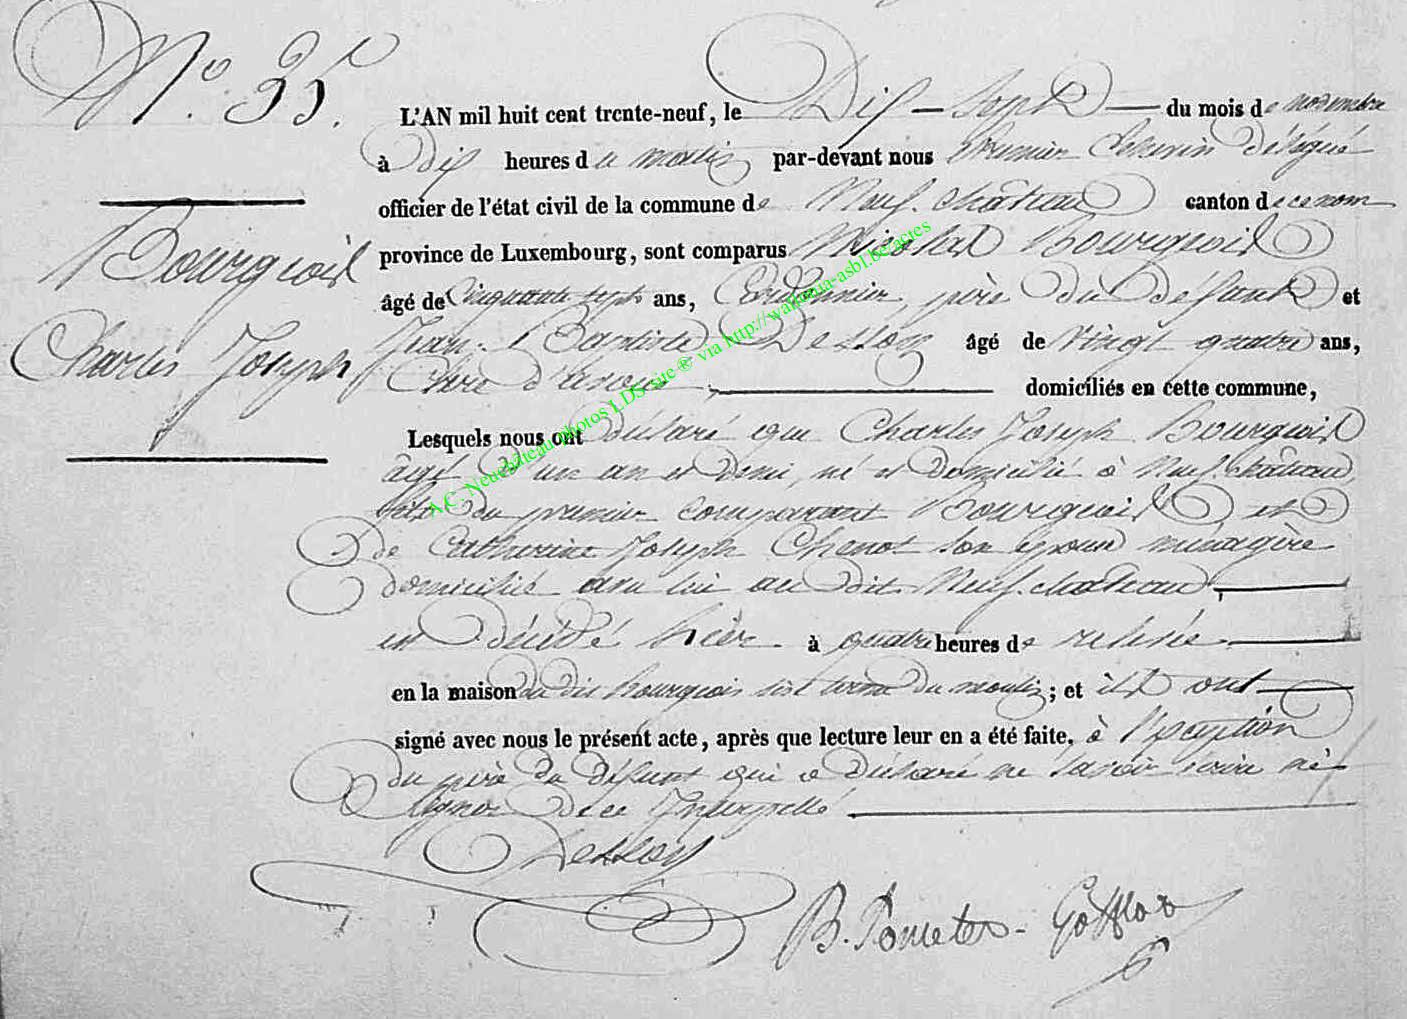 N.º 35.
L'AN mil huit cent trente-neuf, le Dix-Sept du mois de novembre
à dix heures du matin par-devant nous premier Echevin délégué
officier de l'état civil de la commune de Neufchâteau canton de ce nom
province de Luxembourg, sont comparus Nicolas Bourgeois
âgé de Cinquante sept ans, Cordonnier, père du défunt et
Jean-Baptiste Desloy âgé de Vingt quatre ans,
Clerc d'avoué, domiciliés en cette commune,
Bourgeois
Charles Joseph
Lesquels nous ont déclaré que Charles Joseph Bourgeois
âgé d'un an et demi, né et domicilié à Neufchâteau,
fils du premier comparant Bourgeois et
de Catherine Joseph Chenot son épouse ménagère
domiciliée avec lui au dit Neufchâteau,
est décédé hier à quatre heures de relevée
en la maison du dit Bourgeois du moulin; et ils ont
signé avec nous le présent acte, après que lecture leur en a été faite. à l'exception
du père du défunt qui a déclaré ne savoir écrire ni
signer de ce Interpellé
Desloy
B. Poncelet-Gofflot
A.C. Neufchâteau photos LDS site ® via http://wallonia-asbl.be/actes